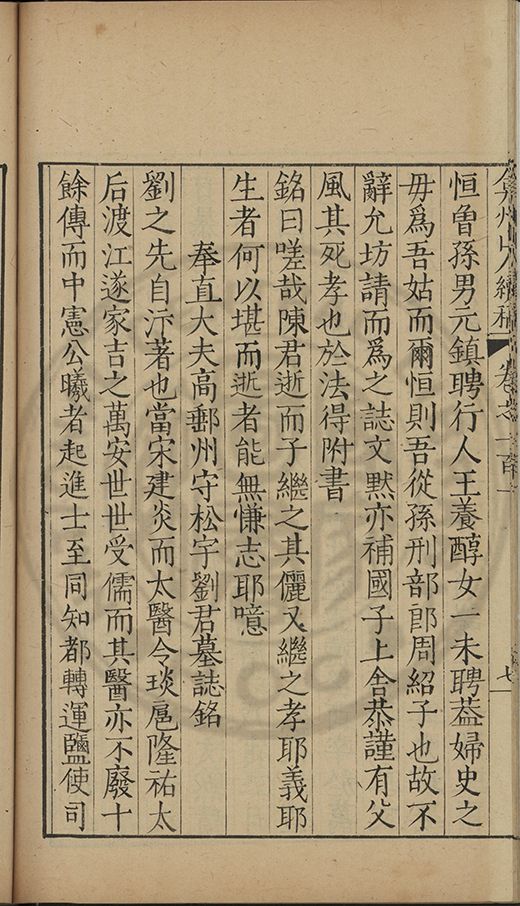 恒曾孫男元鎮聘行人王養醇女一未聘葢婦史之
母爲吾姑而爾恒則吾從孫刑部郎周紹子也故不
辭允坊請而爲之誌文默亦補國子上舍恭謹有父
風其死孝也於法得附書
銘曰嗟哉陳君逝而子繼之其儷又繼之孝耶義耶
生者何以堪而逝者能無慊志耶噫
奉直大夫高郵州守松宇劉君墓誌銘
劉之先自汴著也當宋建炎而太醫令琰扈隆祐太
后渡江遂家吉之萬安世世受儒而其醫亦不廢十
餘傳而中憲公曦者起進士至同知都轉運鹽使司